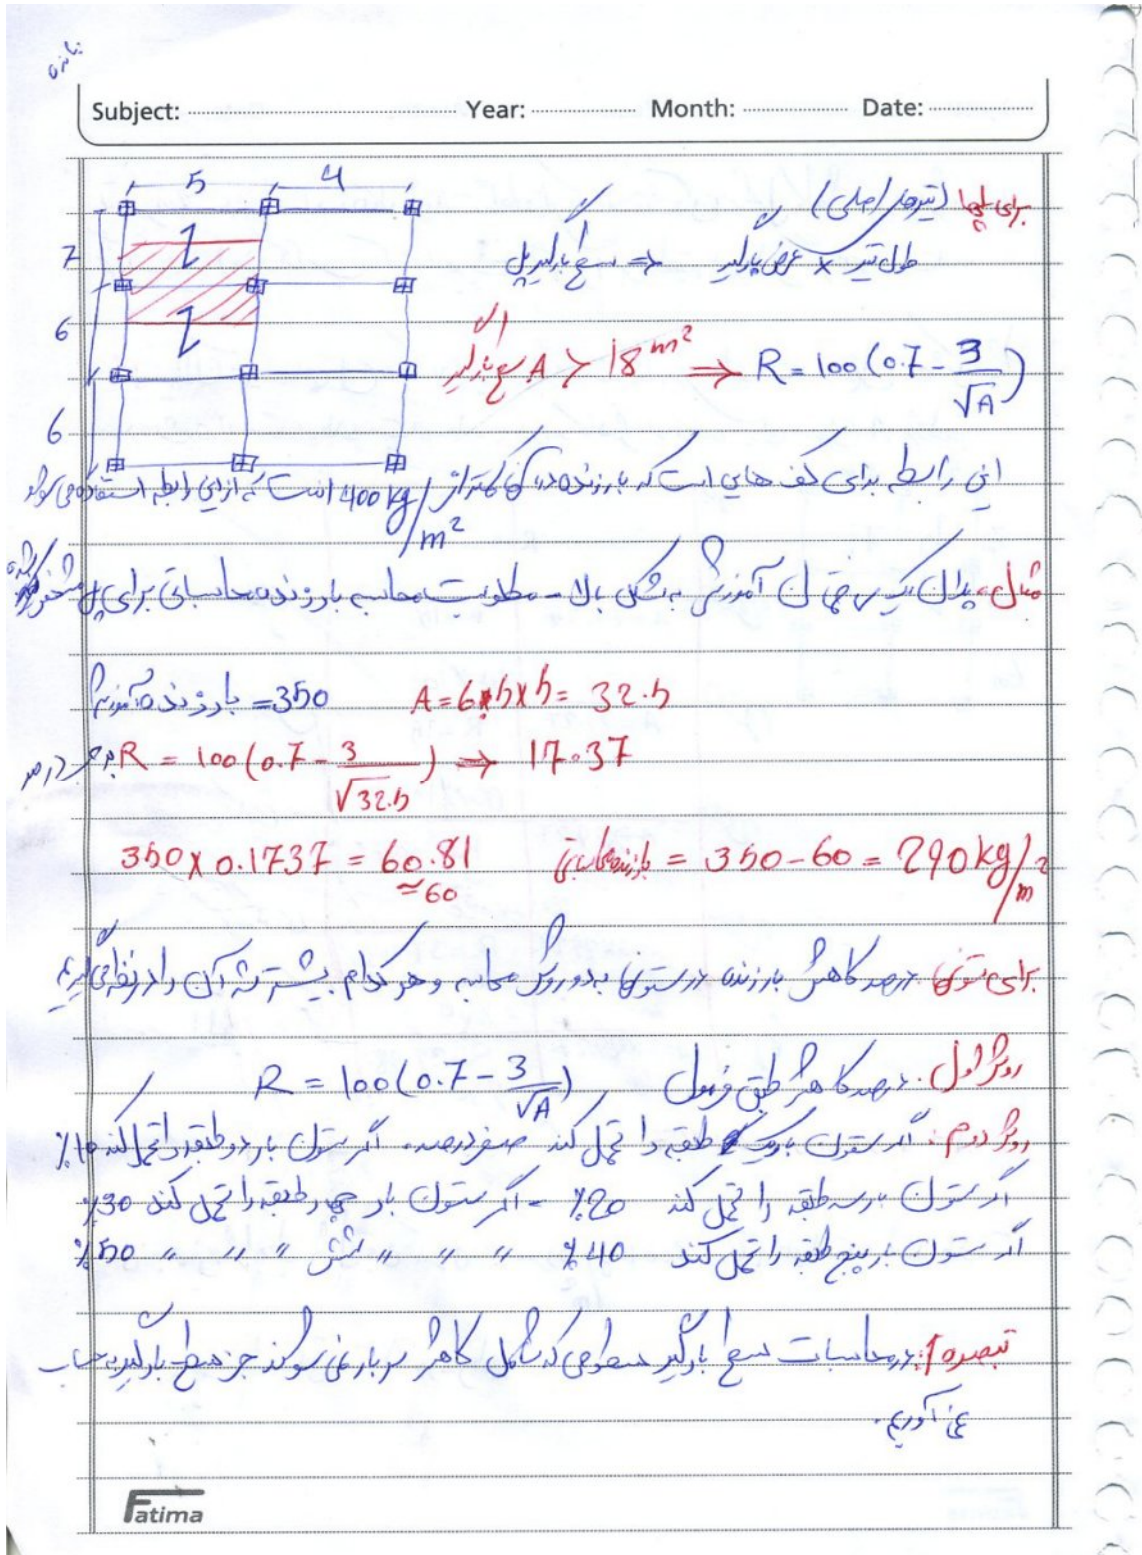 Subject: Year: Month: Date:
5 4
7
6
6
برای پلها (تیرهای اصلی)
طول تیر × عرض بارگیر ⇒ سطح بارگیر پل
سطح بارگیر A > 18 m² ⇒ R = 100 (0.7 - 3/√A)
این رابطه برای کف هایی است که بار زنده در آن کمتر از 400 kg/m² است که از این رابطه استفاده می شود
مثال: پلان یک ساختمان آموزشی به شکل بالا - مطلوبست محاسبه بار زنده محاسباتی برای پل مشخص شده
بار زنده آموزشی = 350 A = 6.5 x 5 = 32.5
R = 100 (0.7 - 3/√32.5) ⇒ 17.37
350 x 0.1737 = 60.81 ≈ 60 بار زنده محاسباتی = 350 - 60 = 290 kg/m²
برای ستونها: درصد کاهش بار زنده در ستونها به دو روش محاسبه و هر کدام بیشتر شد آن را در نظر می گیریم
روش اول: درصد کاهش طبق فرمول R = 100 (0.7 - 3/√A)
روش دوم: اگر ستون بار یک طبقه را تحمل کند صفر درصد. اگر ستون بار دو طبقه را تحمل کند 10%
اگر ستون بار سه طبقه را تحمل کند 20% - اگر ستون بار چهار طبقه را تحمل کند 30%
اگر ستون بار پنج طبقه را تحمل کند 40% " " " شش " " " 50%
تبصره 1: در محاسبات سطح بارگیر سطوحی که شامل کاهش سربار نمی شوند جز سطح بارگیر به حساب
نمی آوریم.
Fatima